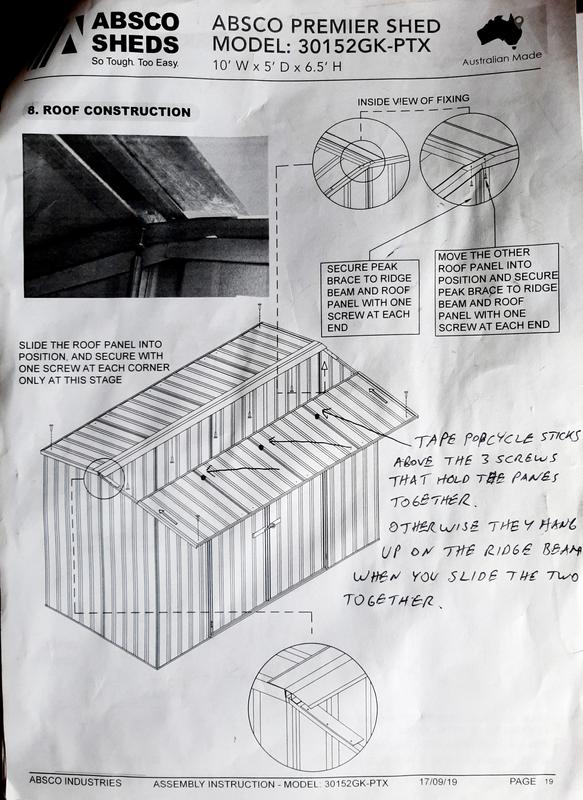 ABSCO
SHEDS
So Tough. Too Easy.
ABSCO PREMIER SHED
MODEL: 30152GK-PTX
10' W x 5' D x 6.5' H
Australian Made
8. ROOF CONSTRUCTION
INSIDE VIEW OF FIXING
SECURE PEAK
BRACE TO RIDGE
BEAM AND ROOF
PANEL WITH ONE
SCREW AT EACH
END
MOVE THE OTHER
ROOF PANEL INTO
POSITION AND SECURE
PEAK BRACE TO RIDGE
BEAM AND ROOF
PANEL WITH ONE
SCREW AT EACH END
SLIDE THE ROOF PANEL INTO
POSITION, AND SECURE WITH
ONE SCREW AT EACH CORNER
ONLY AT THIS STAGE
TAPE POPCYCLE STICKS
ABOVE THE 3 SCREWS
THAT HOLD THE PANES
TOGETHER.
OTHERWISE THEY HANG
UP ON THE RIDGE BEAM
WHEN YOU SLIDE THE TWO
TOGETHER.
ABSCO INDUSTRIES ASSEMBLY INSTRUCTION - MODEL: 30152GK-PTX 17/09/19 PAGE 19